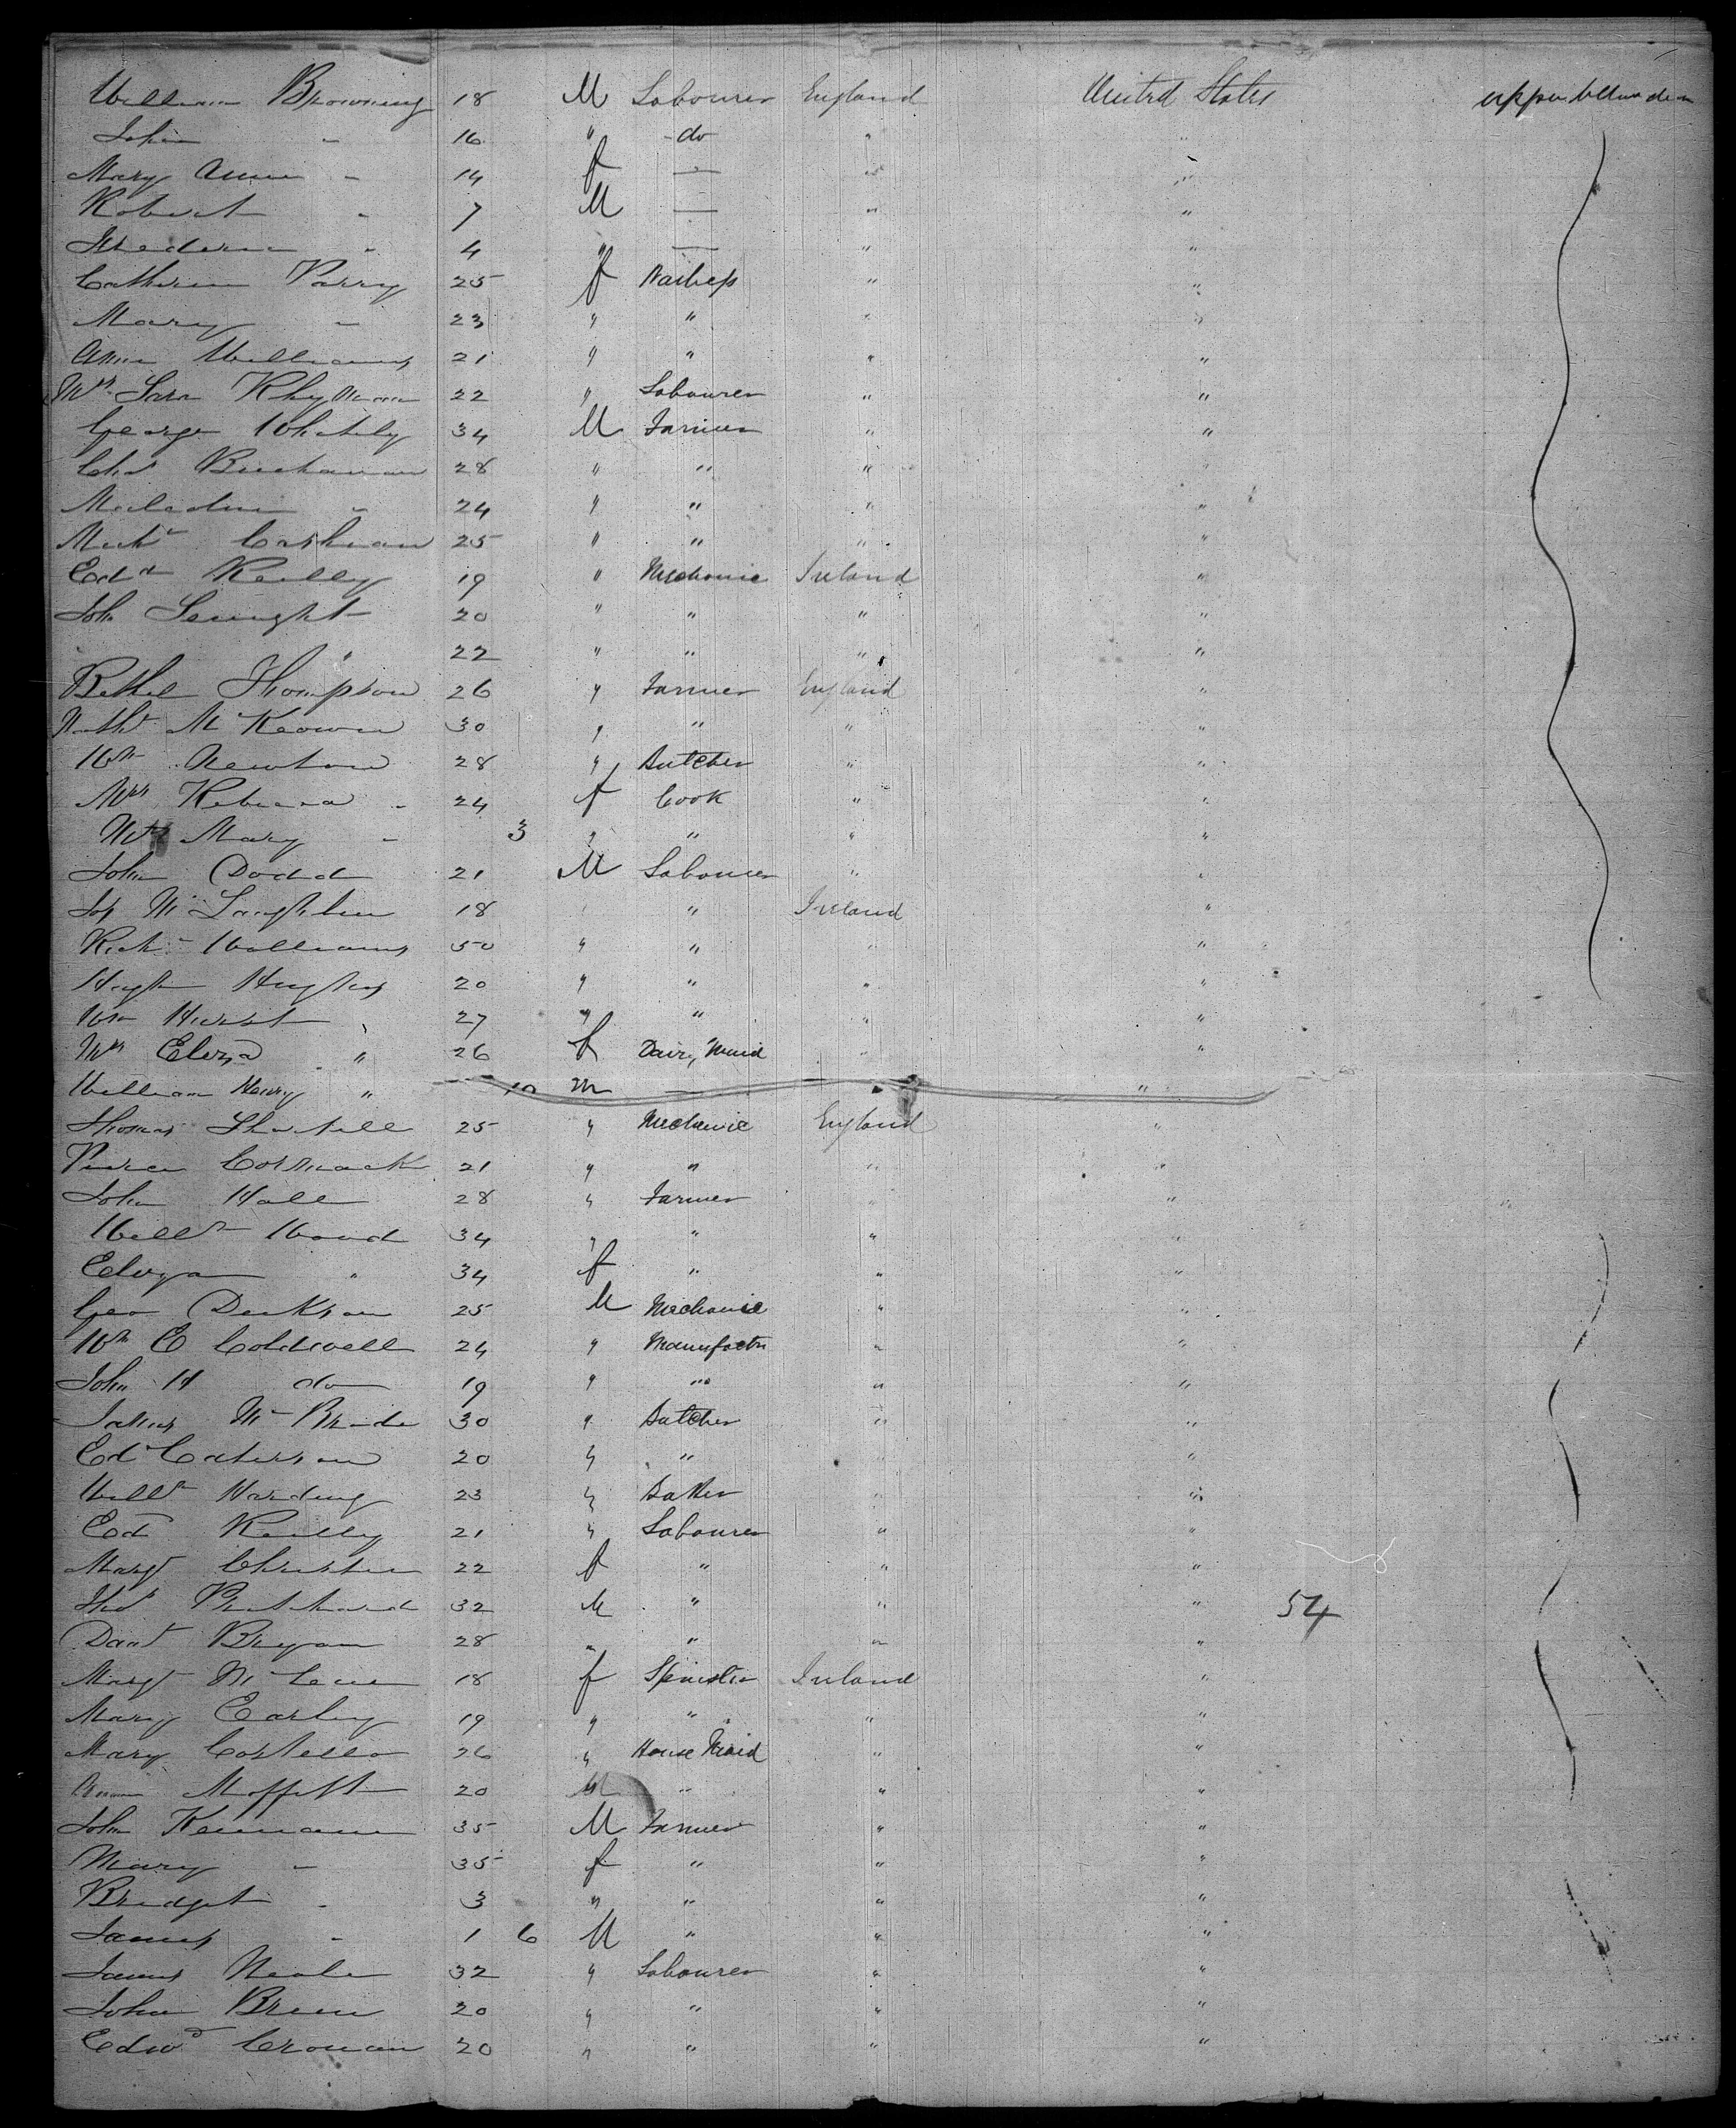 William Browning 18 M Labourer England United States upper between decks
John " 16 " do " "
Mary Anne " 14 f — " "
Robert " 7 M — " "
" 4 " — " "
Catherine Parry 25 f " "
Mary " 23 " " " "
Anne Williams 21 " " " "
Mrs Sara 22 " Labourer " "
George Whately 34 M Farmer " "
Chas Buchanan 28 " " " "
Malcolm " 24 " " " "
Michl Cashman 25 " " " "
Edd Reilly 19 " Mechanic Ireland "
John 20 " " " "
" 22 " " " "
Bethel Thompson 26 " Farmer England "
Nathl McKeown 30 " " " "
Wm Newton 28 " Butcher " "
Mrs Rebecca " 24 f Cook " "
Mary " 3 " " " "
John Dodd 21 M Labourer " "
Jos McLaughlin 18 " Ireland "
Richd Williams 50 " " " "
Hugh Hughes 20 " " " "
Wm Hurst " 27 " " " "
Mrs Eliza " 26 f Dairy Maid " "
William Henry " 10 m — " "
Thomas 25 " Mechanic England "
Pierce Cormack 21 " " " "
John Hall 28 " Farmer " "
Willm Wood 34 " " " "
Eliza " 34 f " " "
Geo Dickson 25 M Mechanic " "
Wm E Coldwell 24 " Manufactr " "
John H do 19 " " " "
James McBride 30 " Butcher " "
Edd 20 " " " "
Willm Harding 23 " Baker " "
Ed Reilly 21 " Labourer " "
Margt Christie 22 f " " "
Thos Pritchard 32 M " " " 54
Danl Bryan 28 " " " "
Margt 18 f Spinster Ireland "
Mary Earley 19 " " " "
Mary Costello 26 " House Maid " "
Ann Moffett 20 " " "
John 35 M Farmer " "
Mary " 35 f " " "
Bridget " 3 " " " "
James " 1 6 M " " "
James Neale 32 " Labourer " "
John Breen 20 " " " "
Edwd Cronan 20 " " " "